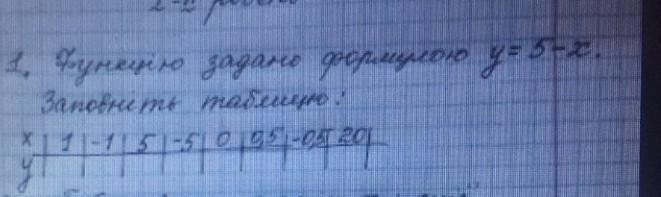 1. Функцію задано формулою y = 5 - x.
Заповніть таблицю:
x | 1 | -1 | 5 | -5 | 0 | 0,5 | -0,5 | 20 |
y